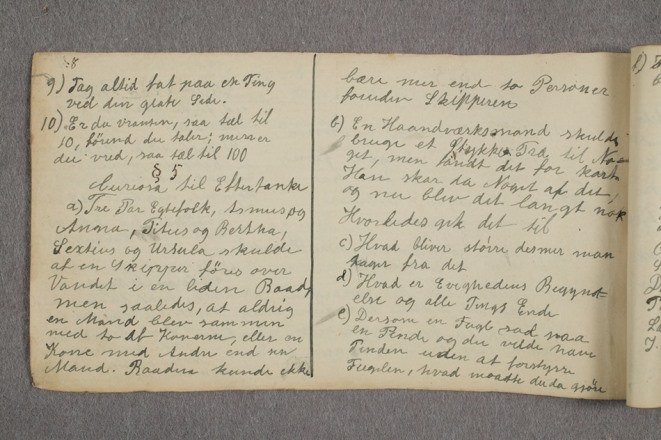 8
9) Tag altid fat paa en Ting
ved den glate Side.
10) Er du vranten, saa tæl til
10, førend du taler; men er
du vred, saa tæl til 100
§ 5
Curiosa til Eftertanke
a) Tre Par Egtefolk, Asmus og
Anna, Titus og Bertha,
Sextius og Ursula skulde
af en Skipper føres over
Vandet i en liden Baad,
men saaledes, at aldrig
en Mand blev sammen
med to af Konerne, eller en
Kone med Andre end en
Mand. Baaden kunde ikke
bære mer end to Personer
foruden Skipperen
b) En Haandværksmand skulde
bruge et Stykke Træ til No=
get, men fandt det for kort
Han skar da Noget af det,
og nu blev det langt nok
Hvorledes gik det til
c) Hvad bliver større desmer man
tager fra det
d) Hvad er Evighedens Begynd=
else og alle Tings Ende
e) Dersom en Fugl sad paa
en Gjorde og du vilde have
Pinden uden at forstyrre
Fuglen, hvad maatte du da gjøre